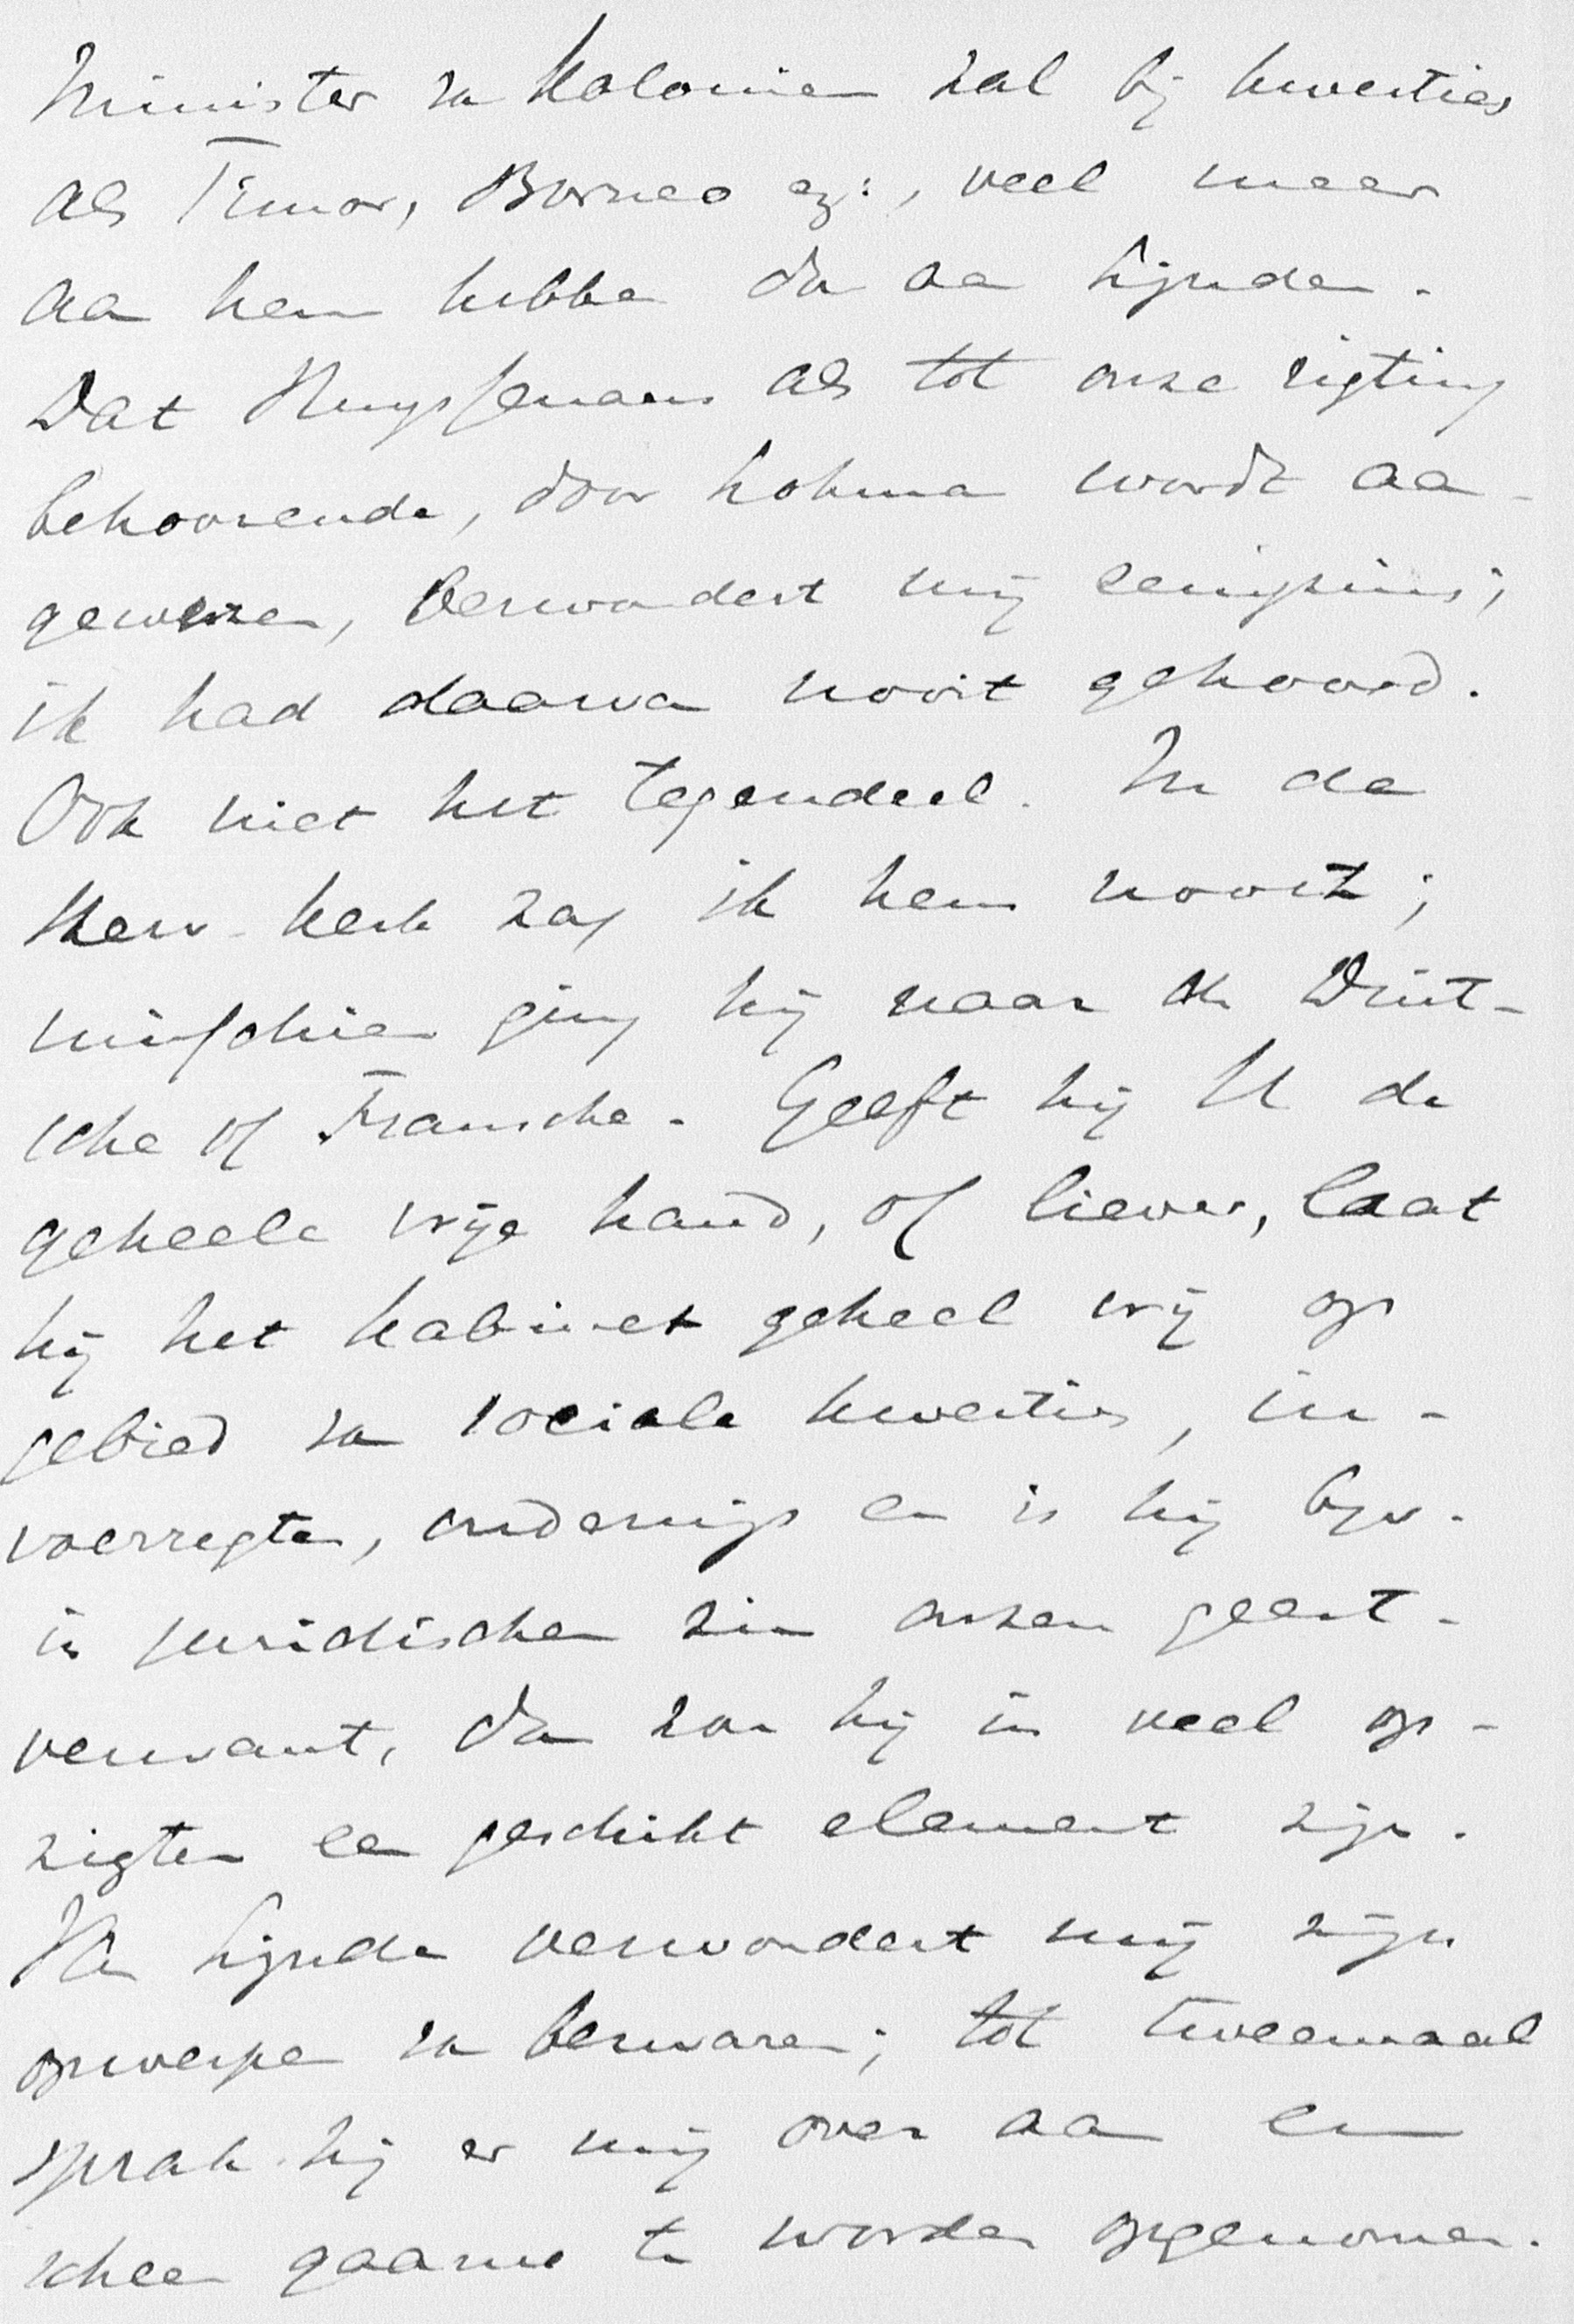 Minister van Kolonien zal bij kwesties
als Timor, Borneo ez:, veel meer
aan hem hebben dan aan Lijnden.
Dat Huyssemans als tot onze rigting
behoorende, door Lohman wordt aan-
gewezen, verwondert mij eenigzins;
ik had daarvan nooit gehoord.
Ook niet het tegendeel. In de
Herv. kerk zag ik hem nooit;
misschien ging hij naar de Duit-
sche of Fransche. Geeft hij U de
geheele vrije hand, of liever, laat
hij het kabinet geheel vrij op
gebied van sociale kwesties, in-
voerregten, onderwijs en is hij bijv.
in juridischen zin onzen geest-
verwant, dan zou hij in veel op-
zigten een geschikt element zijn.
Van Lijnden verwondert mij zijn
opwerpen van bezwaren; tot tweemaal
sprak hij er mij over aan en
scheen gaarne te worden opgenomen.